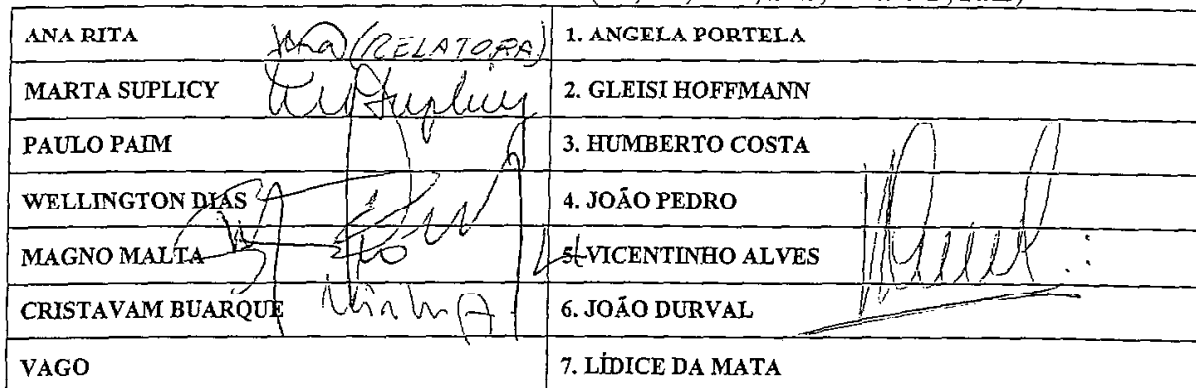 ANA RITA (RELATORA) 1. ANGELA PORTELA
MARTA SUPLICY MSuplicy 2. GLEISI HOFFMANN
PAULO PAIM 3. HUMBERTO COSTA
WELLINGTON DIAS 4. JOÃO PEDRO
MAGNO MALTA 5. VICENTINHO ALVES
CRISTAVAM BUARQUE 6. JOÃO DURVAL
VAGO 7. LÍDICE DA MATA